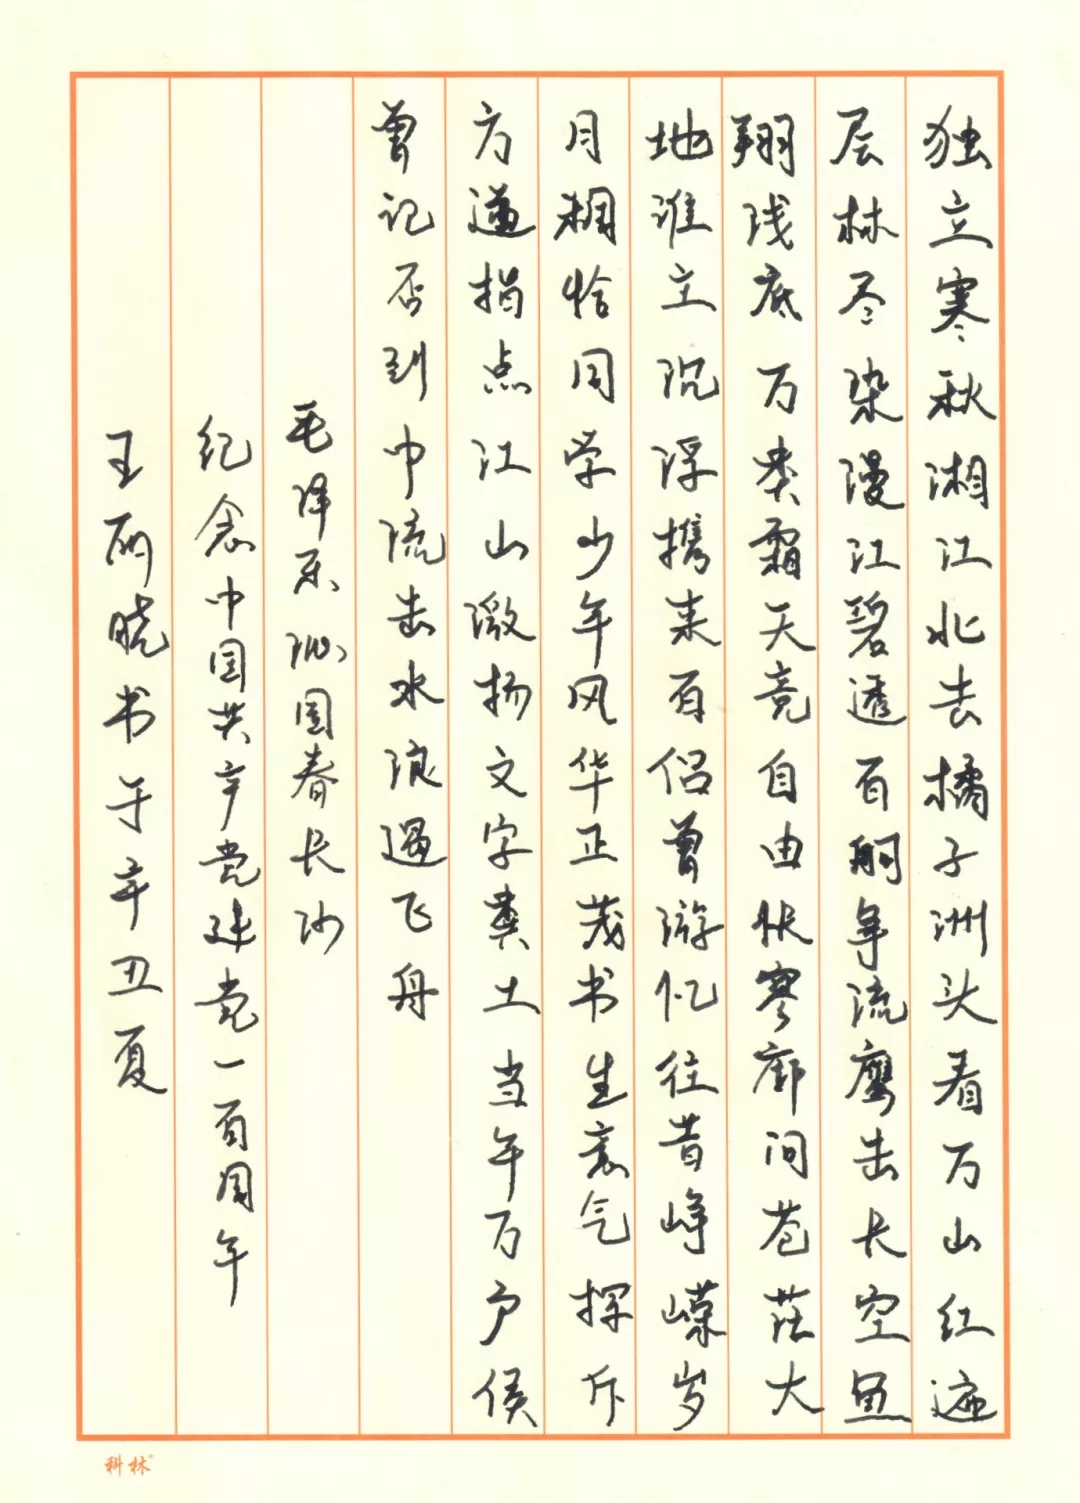 独立寒秋湘江北去橘子洲头看万山红遍
层林尽染漫江碧透百舸争流鹰击长空鱼
翔浅底万类霜天竞自由怅寥廓问苍茫大
地谁主沉浮携来百侣曾游忆往昔峥嵘岁
月稠恰同学少年风华正茂书生意气挥斥
方遒指点江山激扬文字粪土当年万户侯
曾记否到中流击水浪遏飞舟
毛泽东沁园春长沙
纪念中国共产党建党一百周年
王丽晓书于辛丑夏
科林